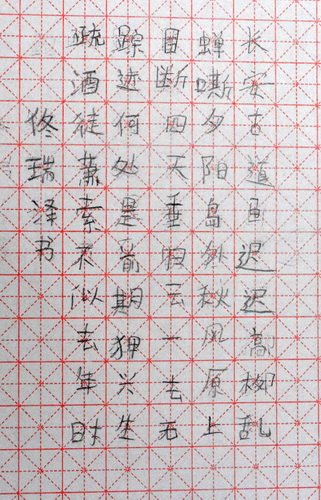 长安古道马迟迟高柳乱
蝉嘶夕阳岛外秋风原上
目断四天垂归云一去无
踪迹何处是前期狎兴生
疏酒徒萧索不似去年时
佟瑞泽书